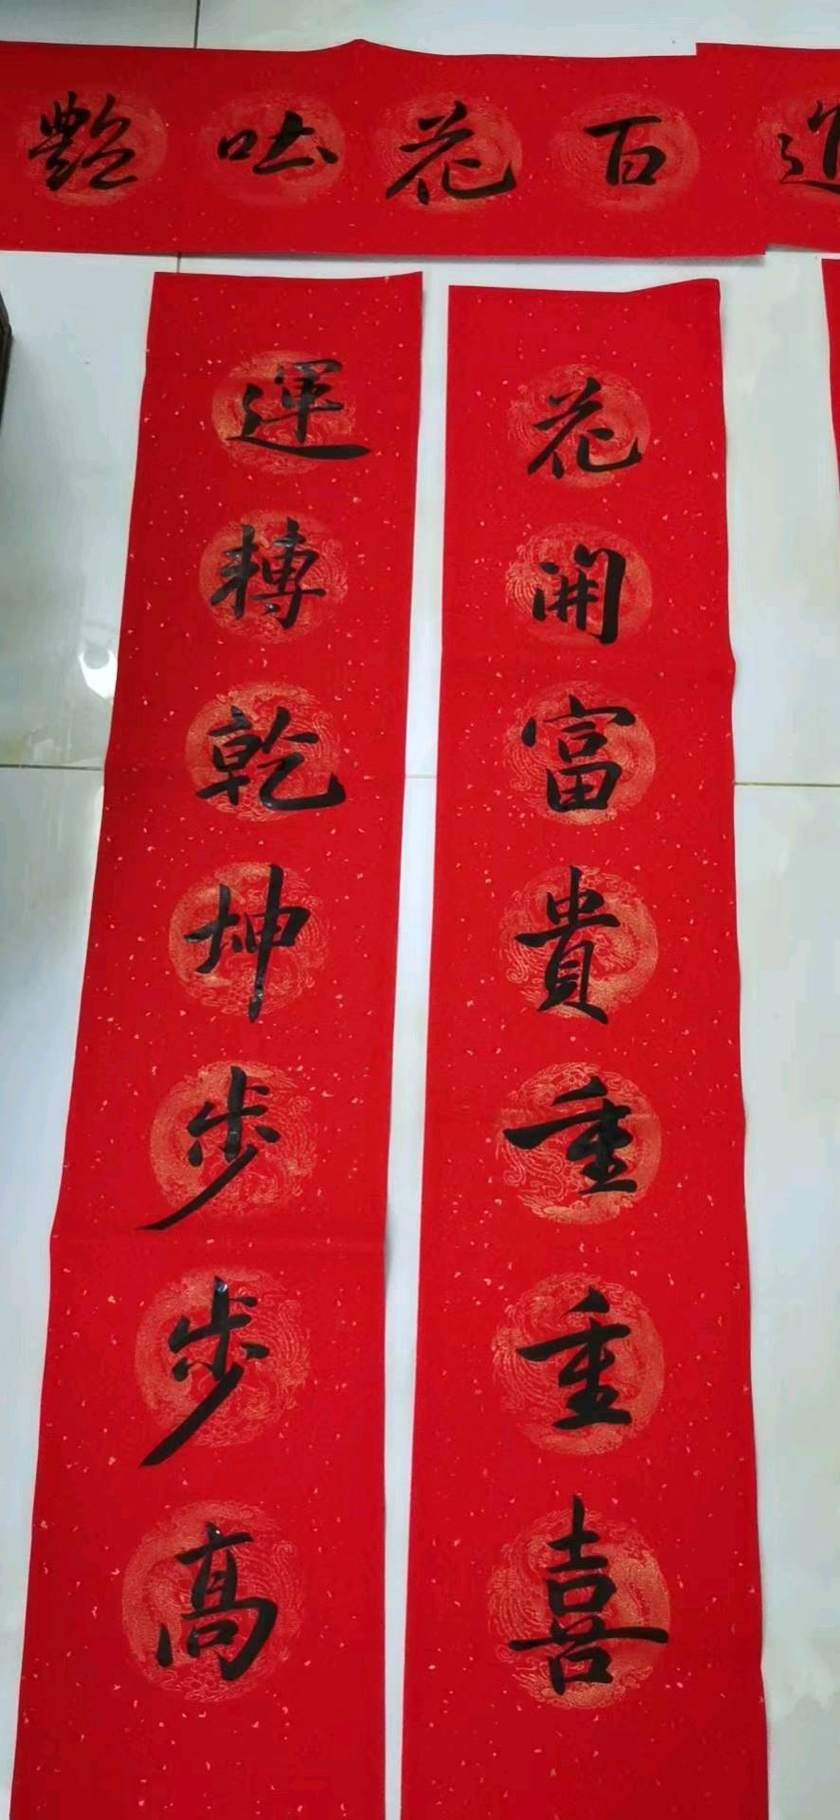 百花吐艷
花開富貴重重喜
運轉乾坤步步高